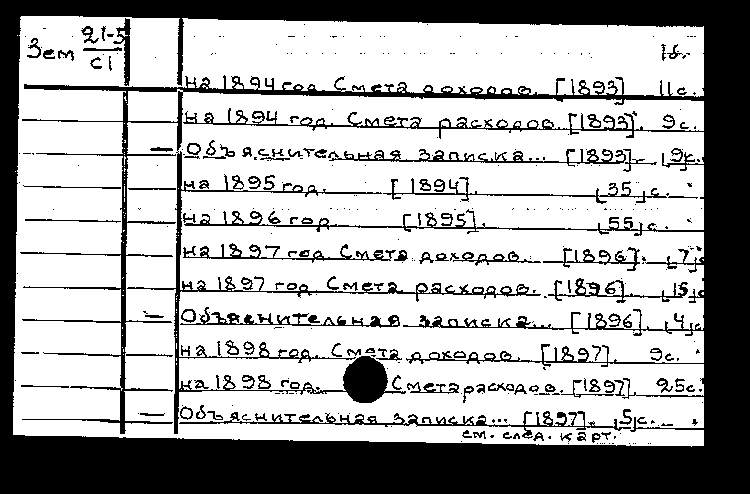 Зем 21-5
С1
на 1894 год. Смета доходов. [1893] 11с.
на 1894 год. Смета расходов. [1893]. 9с.
— Объяснительная записка... [1893]. [9]с.
на 1895 год. [1894]. [35]с.
на 1896 год [1895]. [55]с.
на 1897 год. Смета доходов. [1896]. [7]с
на 1897 год Смета расходов. [1896]. [15]с
— Объяснительная записка... [1896]. [4]с
на 1898 год. Смета доходов. [1897]. 9с.
на 1898 год. Смета расходов. [1897]. 25с.
— Объяснительная записка... [1897]. [5]с.
см. след. карт.